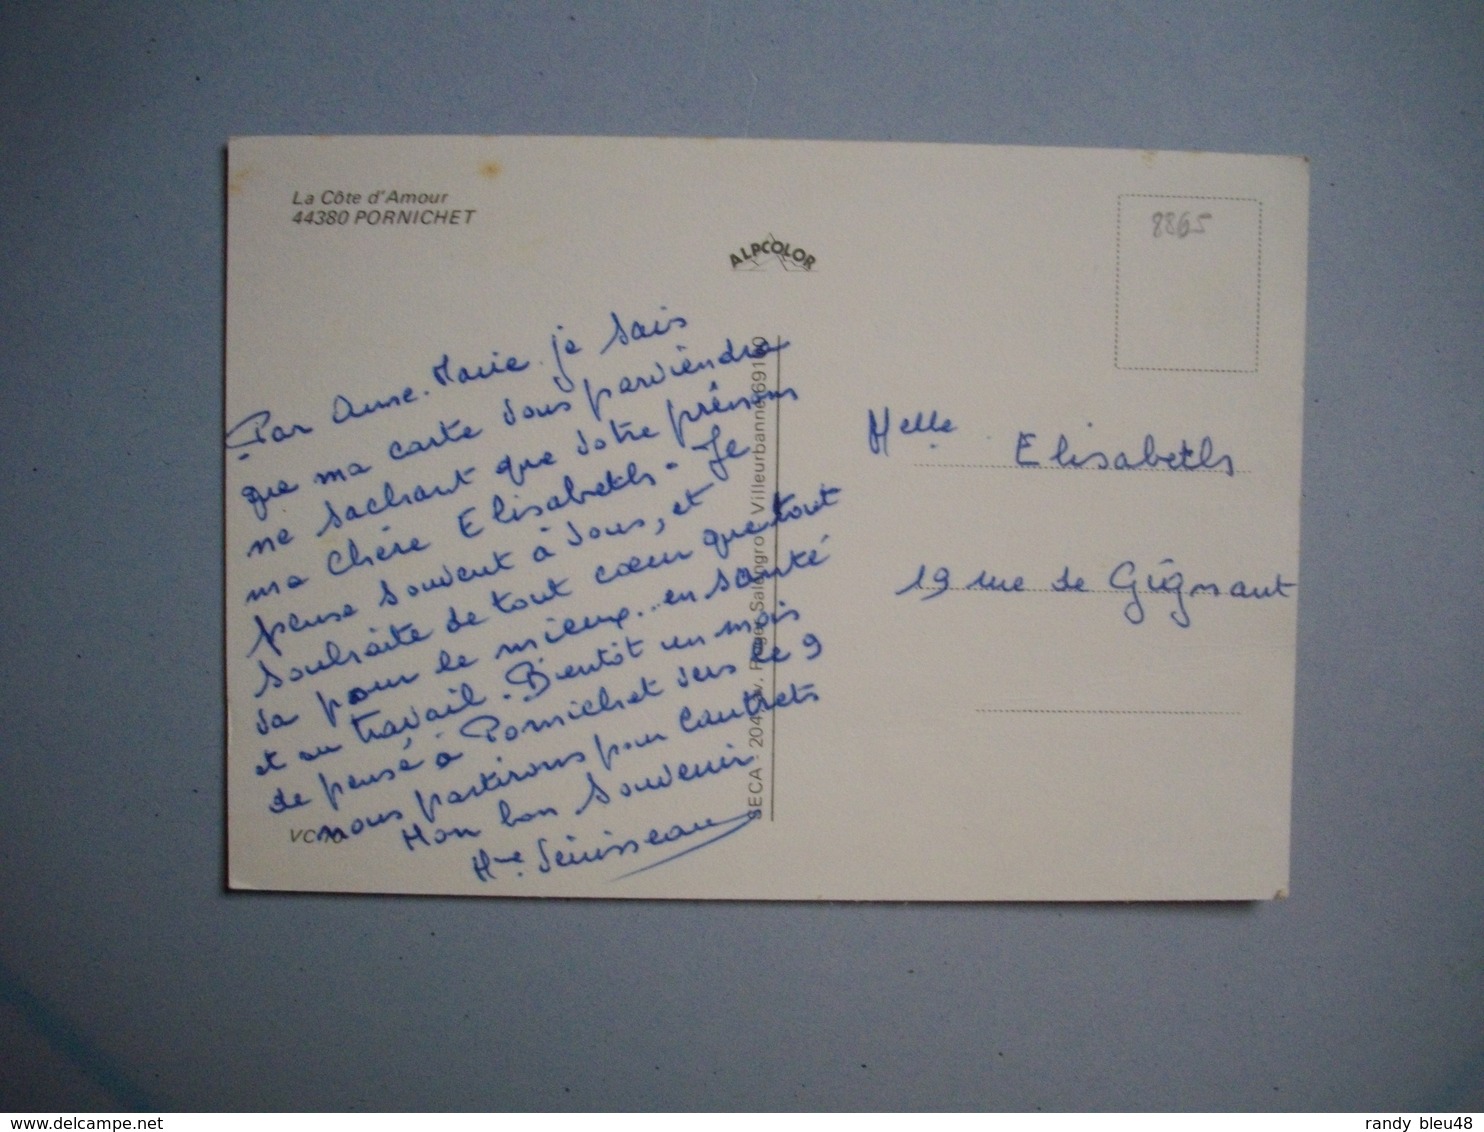 La Côte d'Amour
44380 PORNICHET
ALPCOLOR
8865
Par Anne-Marie je sais
que ma carte vous parviendra
ne sachant que votre prénom
ma chère Elisabeth - Je
pense souvent à vous, et
souhaite de tout coeur que tout
va pour le mieux.. en santé
et au travail. Bientôt un mois
de pensé à Pornichet vers le 9
nous partirons pour Cautrets
Mon bon souvenir
Mme
VC
SECA - 204 Av. Roger Salengro Villeurbanne 69100
Melle Elisabeth
19 rue de Gignant
randy bleu48